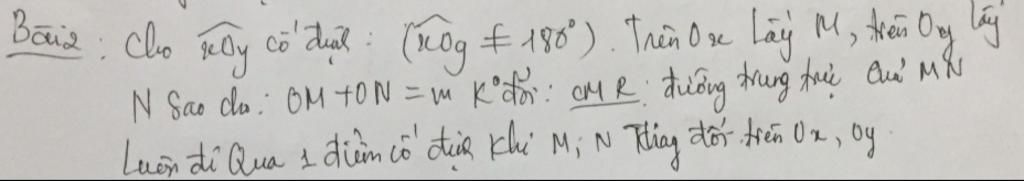 Bài 2: Cho xOy cố định: (xOy ≠ 180°). Trên Ox lấy M, trên Oy lấy
N sao cho: OM + ON = m K° đổi: CMR: đường trung trực của MN
Luôn đi Qua 1 điểm cố định khi M, N thay đổi trên Ox, Oy